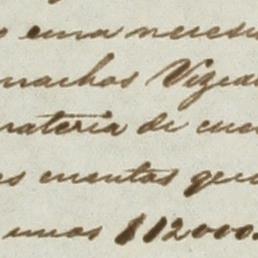 una neces
machos Vized
materia de cue
es cuentas que
unos $12000